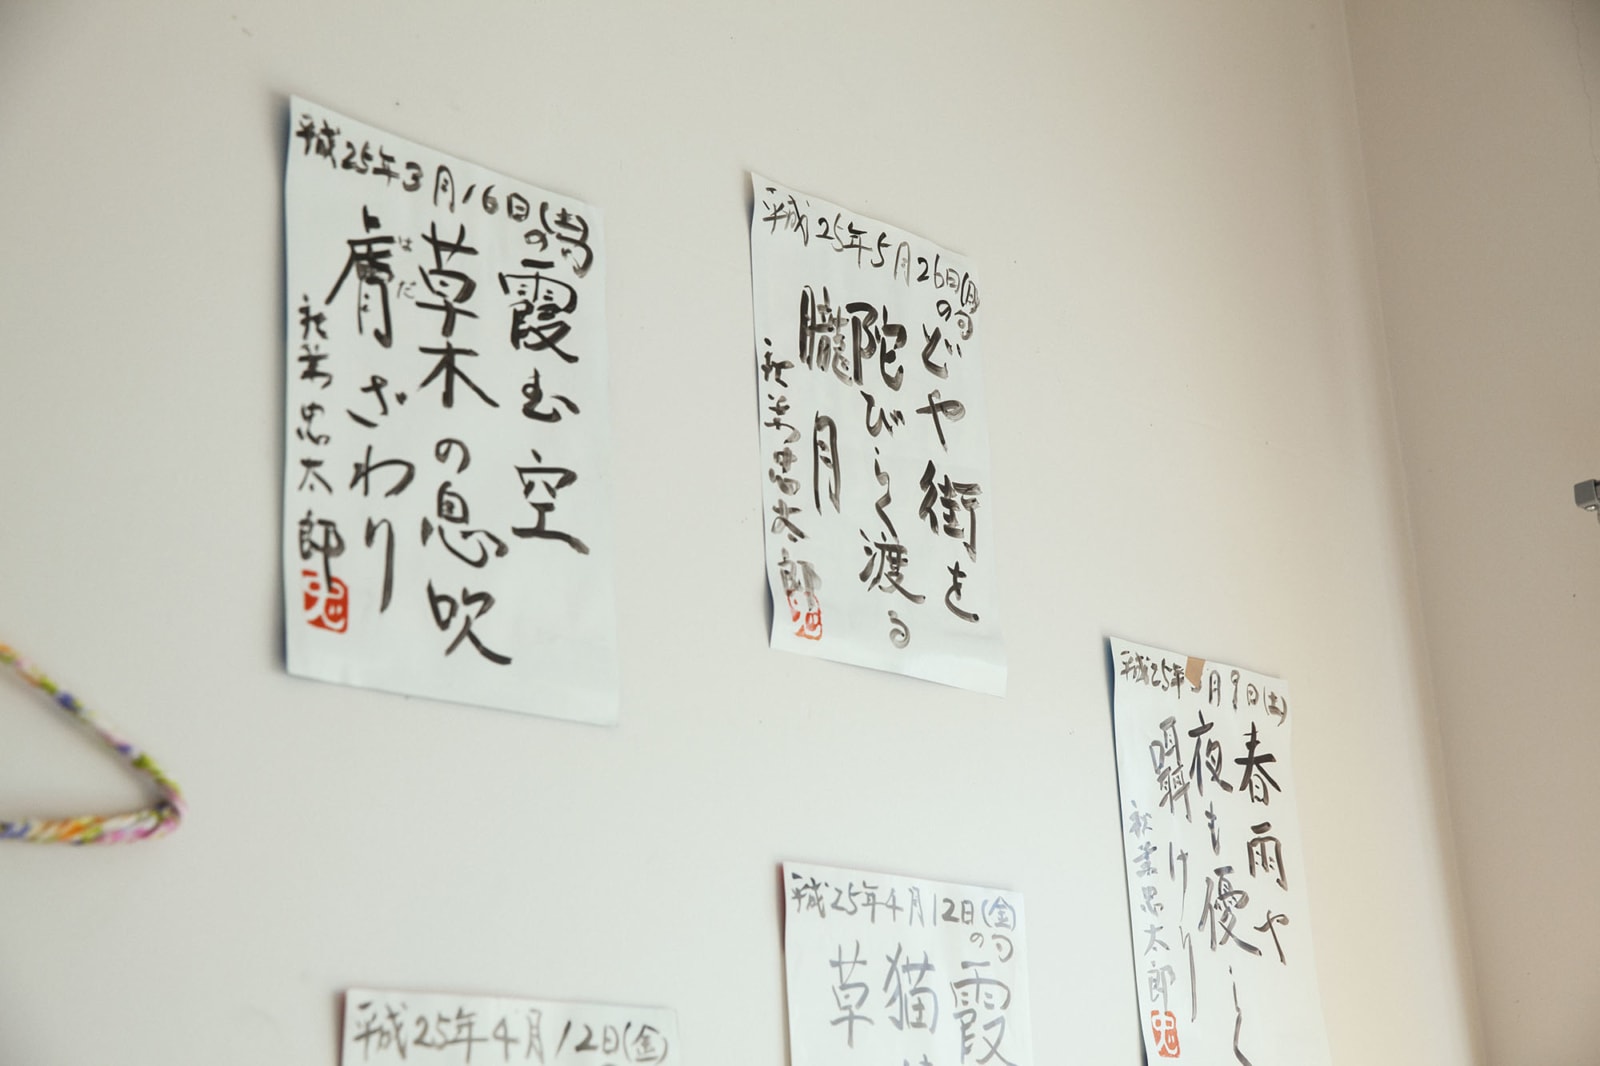 平成25年3月16日(土)
の句
霞む空
草木の息吹
膚ざわり
はだ
秋葉忠太郎
忠
平成25年5月26日(日)
の句
どや街を
陀びしく渡る
朧月
秋葉忠太郎
忠
平成25年3月9日(土)
春雨や
夜も優し
囁けり
秋葉忠太郎
忠
平成25年4月12日(金)
の句
霞
猫
草
平成25年4月12日(金)